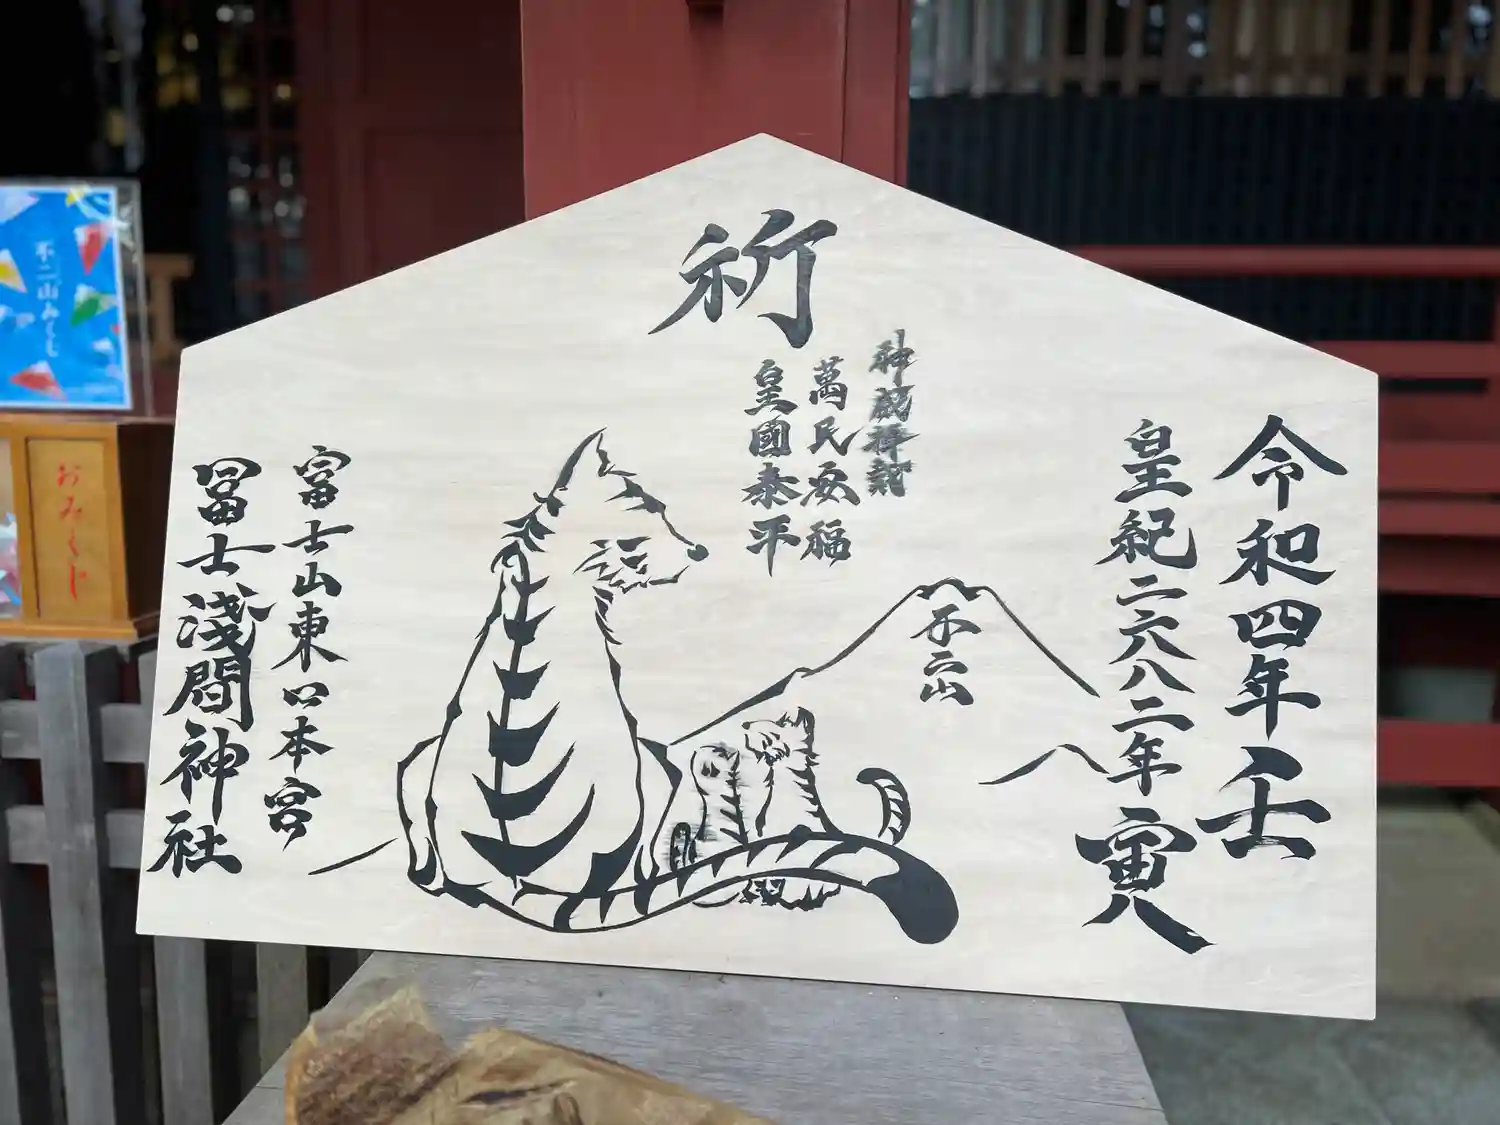 祈
令和四年壬
寅
皇紀二六八二年
萬民安福
皇國泰平
不二山
冨士山東口本宮
冨士浅間神社
不二山みくじ
おみくじ